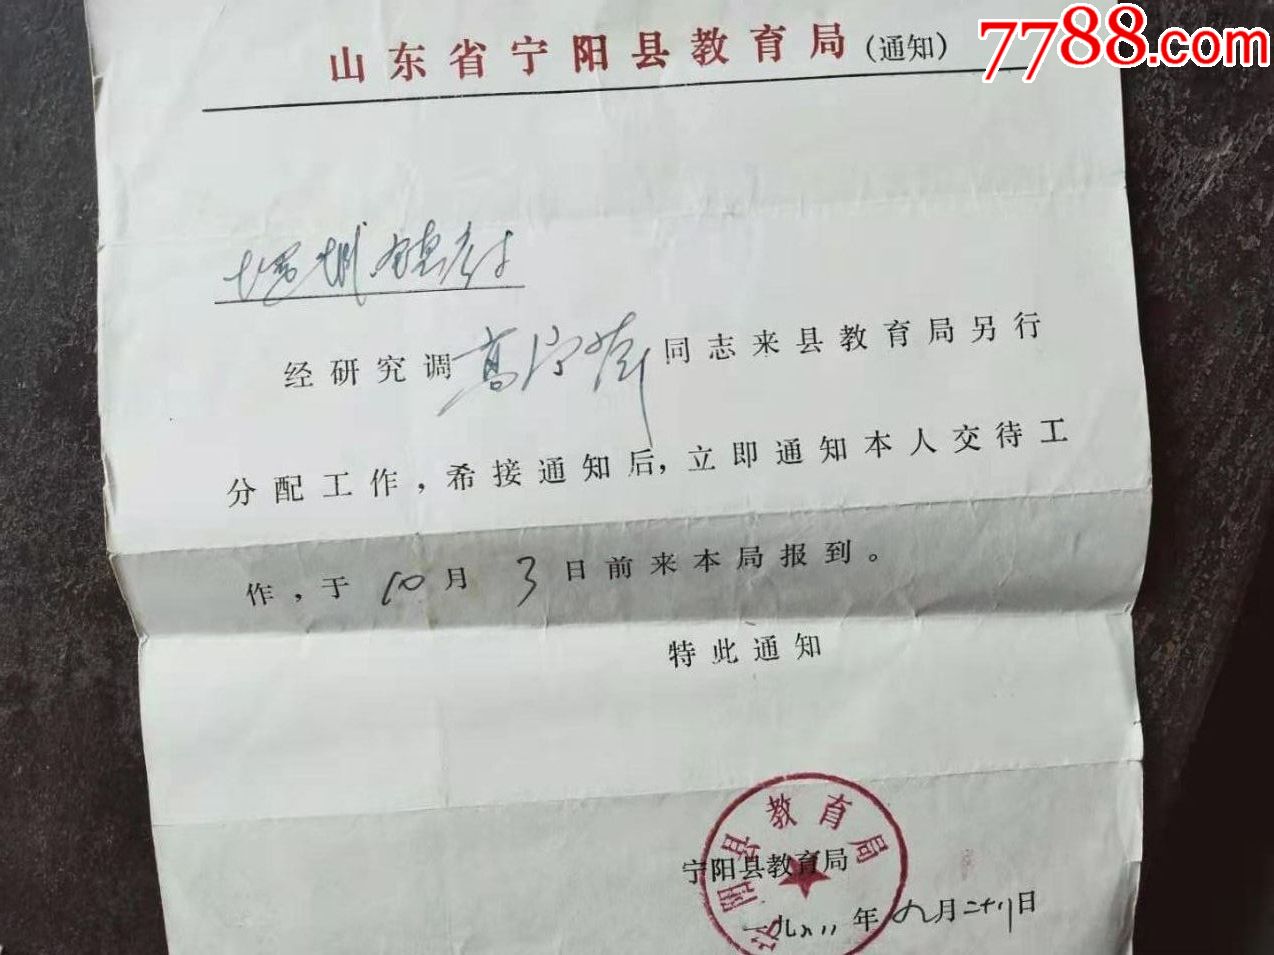 山东省宁阳县教育局(通知)
7788.com
经研究调高 同志来县教育局另行
分配工作，希接通知后，立即通知本人交待工
作，于10月3日前来本局报到。
特此通知
宁阳县教育局
宁阳县教育局
一九八 年九月二十 日